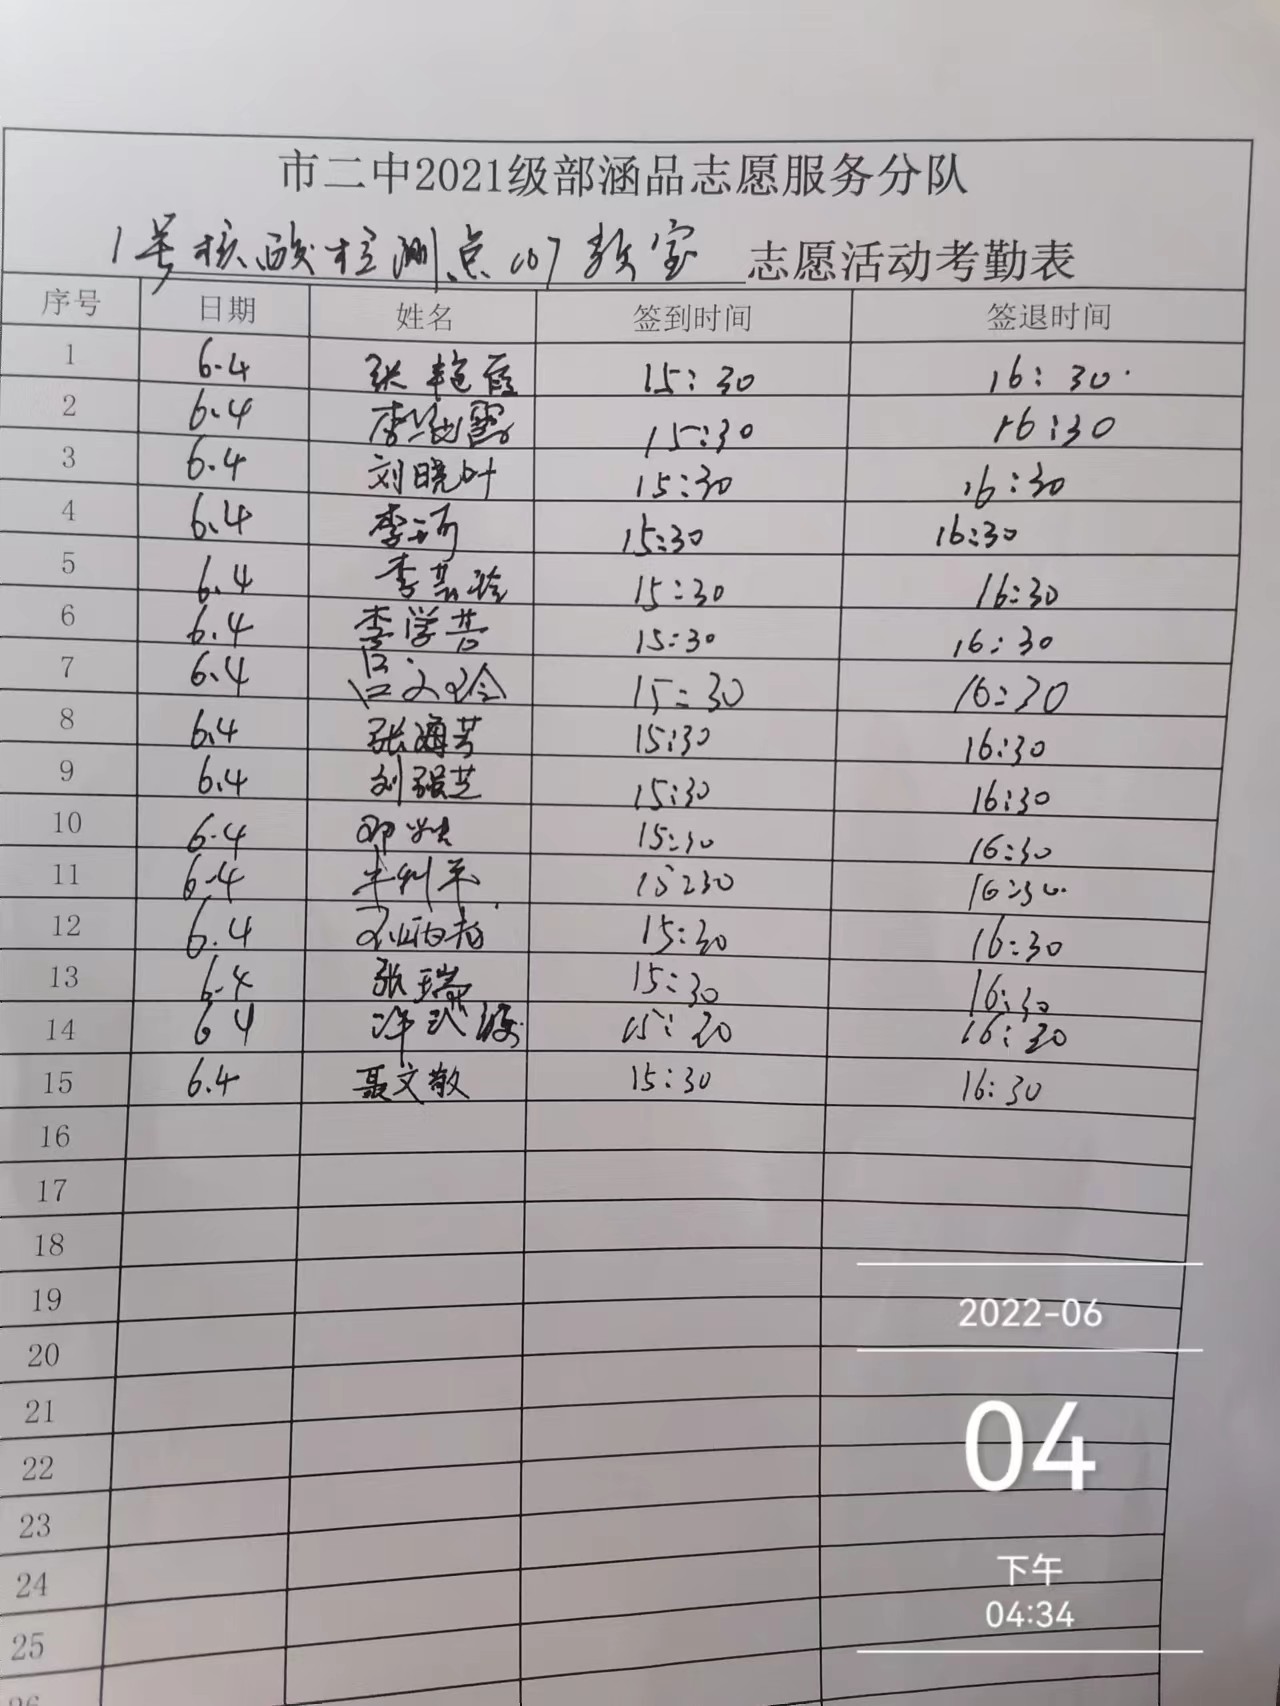 市二中2021级部涵品志愿服务分队
1号核酸检测点107教室 志愿活动考勤表
序号 日期 姓名 签到时间 签退时间
1 6.4 张艳霞 15:30 16:30
2 6.4 李艳霞 15:30 16:30
3 6.4 刘晓叶 15:30 16:30
4 6.4 李河 15:30 16:30
5 6.4 李 玲 15:30 16:30
6 6.4 李学芸 15:30 16:30
7 6.4 吕文玲 15:30 16:30
8 6.4 张海芳 15:30 16:30
9 6.4 刘强芝 15:30 16:30
10 6.4 邓 15:30 16:30
11 6.4 牛利平 15:30 16:30
12 6.4 15:30 16:30
13 6.4 张瑞 15:30 16:30
14 6.4 许 15:30 16:30
15 6.4 聂文敬 15:30 16:30
16
17
18
19
20
21
22
23
24
25
26
2022-06
04
下午
04:34